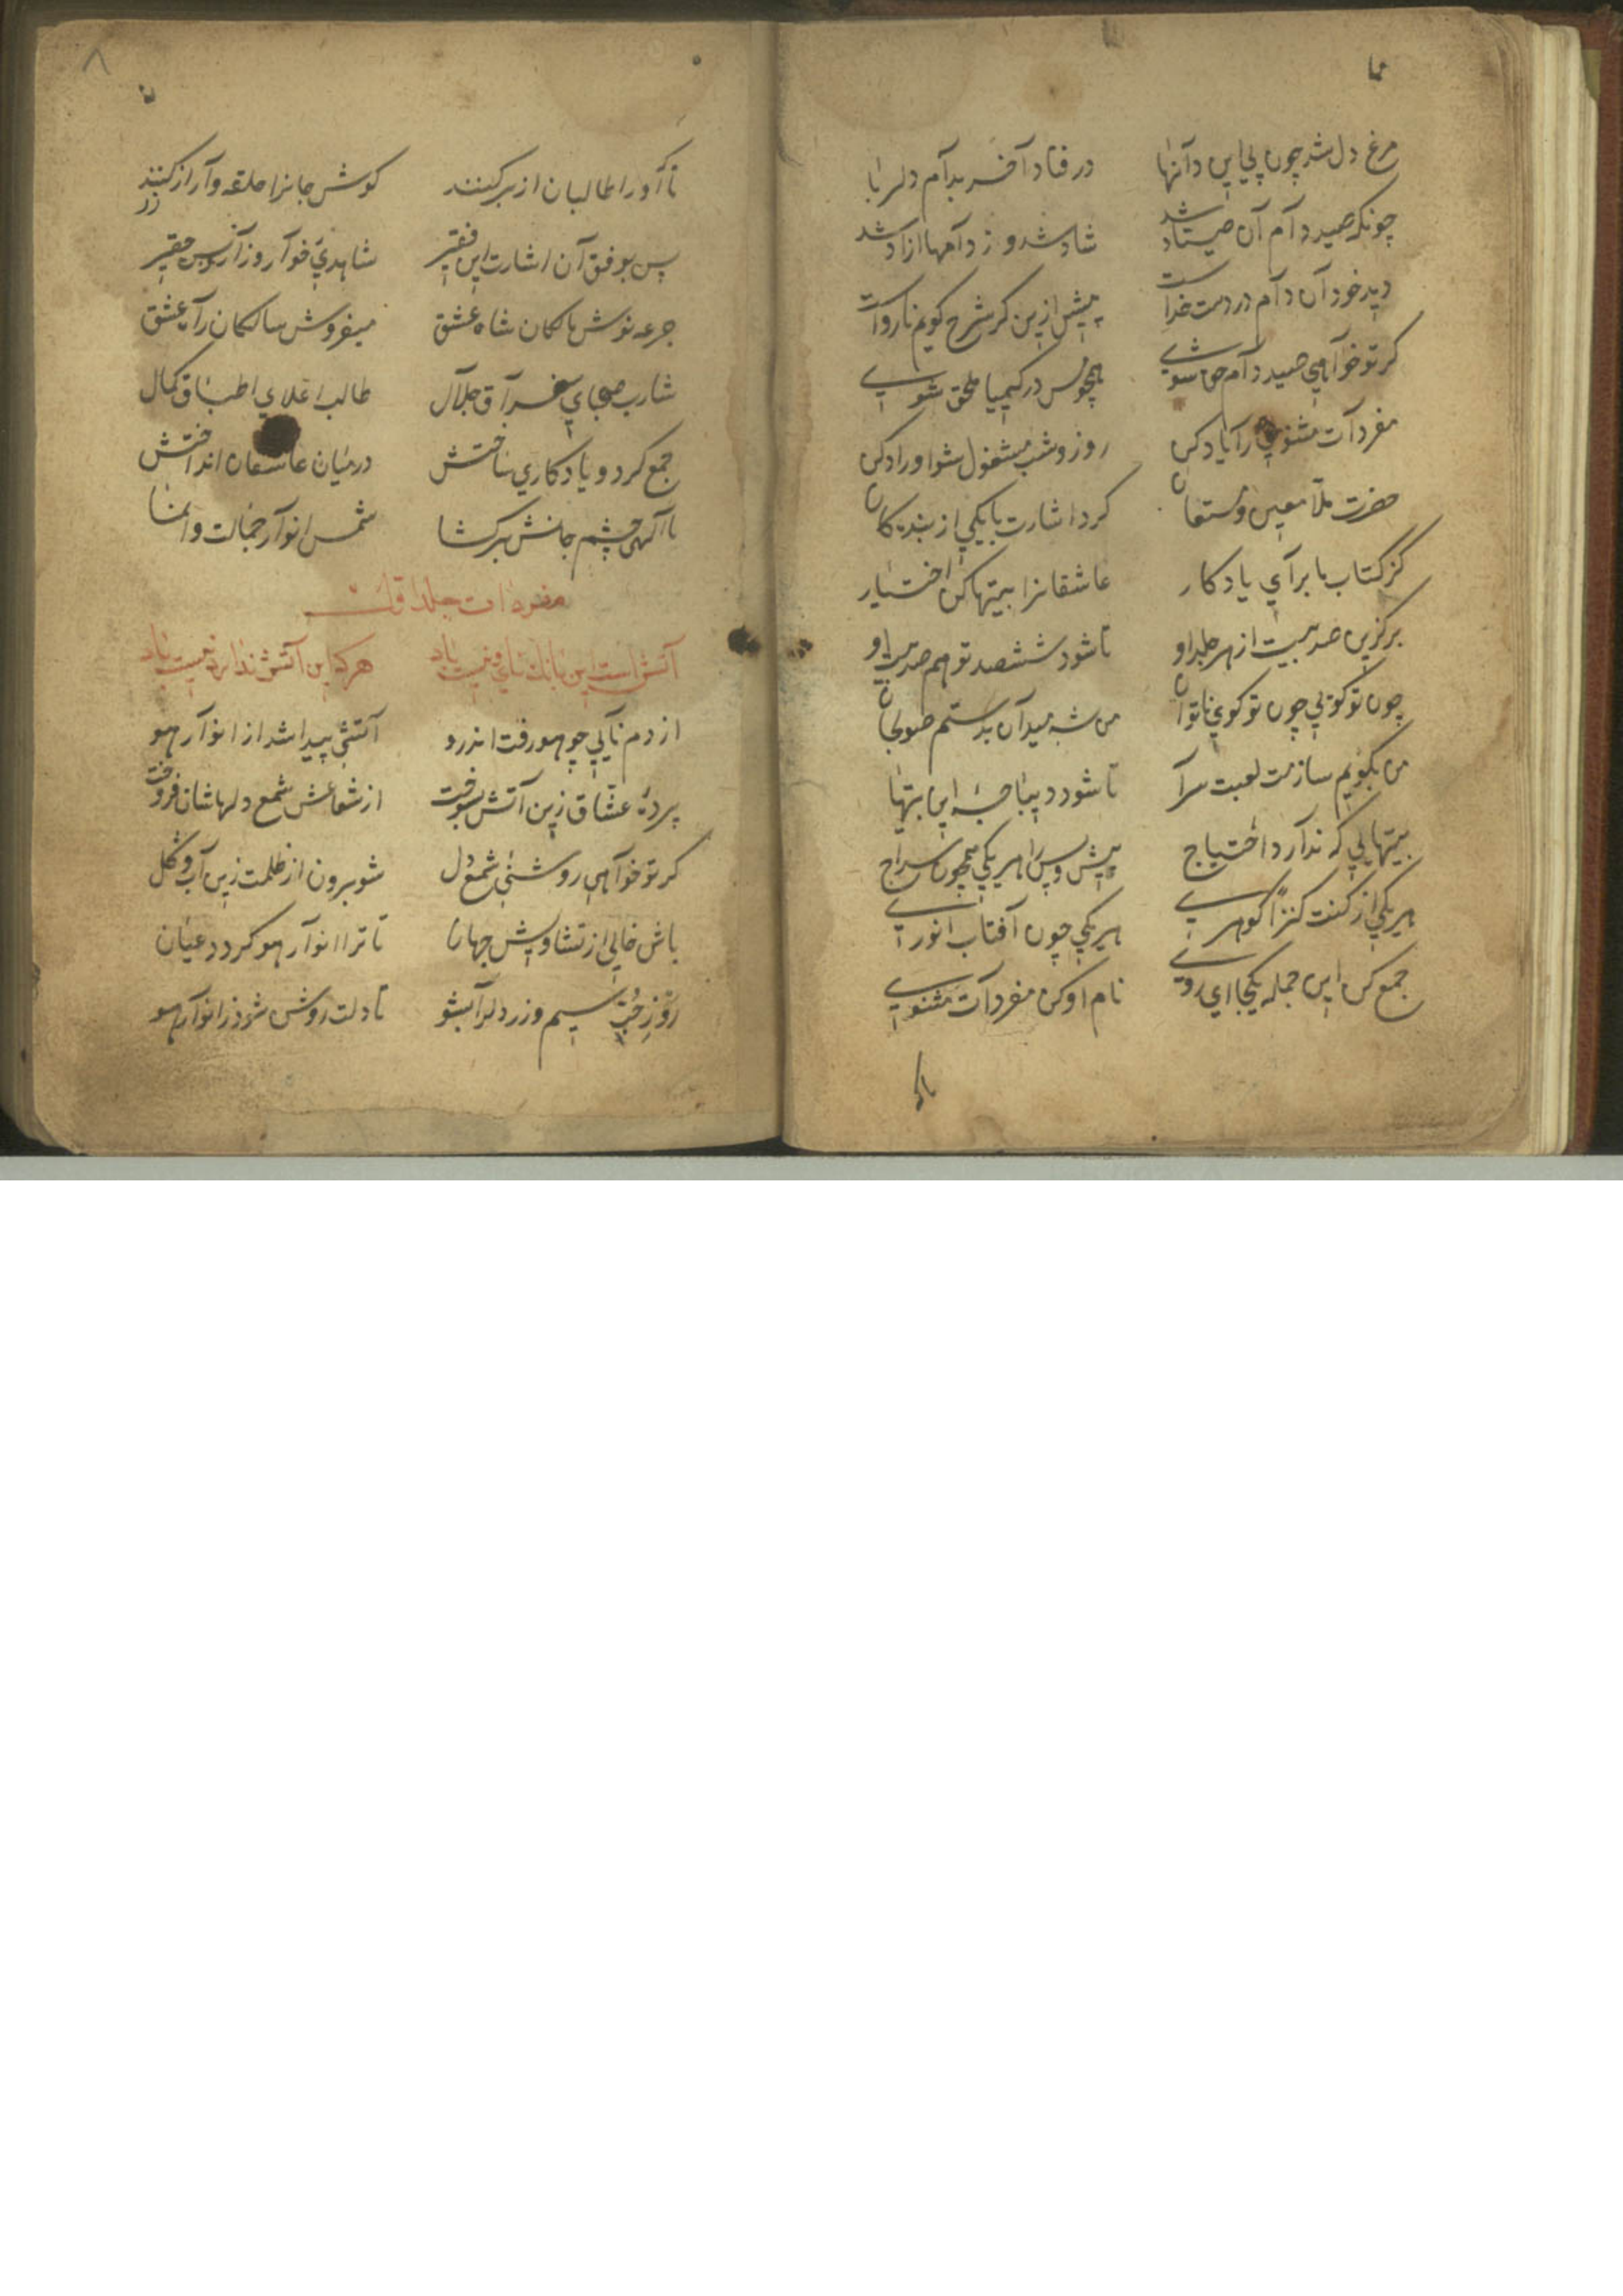 مرغ دل شد چون پی این دآنها در فتاد آخر بدآم دلربا
چونکه صید دآم آن صیّاد شد شاد شد و ز دآمها ازاد شد
دید خود آن دآم در دست خداست بیش ازین کر شرح کویم نارواست
کر تو خوآهی صید دآم حق شوی همچو مس در کیمیا ملحق شوی
مفردآت مثنوی رآ یاد کن روز و شب مشغول شو اوراد کن
حضرت ملّا معین مستعان کرد اشارت با یکی از بندکان
کز کتاب ما برآی یادکار عاشقانرا بیتها کن اختیار
برکزین صد بیت از هر جلد او تا شود ششصد تو هم صد بیت او
چون تو کوئی چون تو کوی ناتوان من شه میدآن بدستم صولجان
من بکویم سازمت لعبت سرآ تا شود دیباجهٔ این بیتها
بیتهایی که ندآرد احتیاج پیش و پس را هریکی همچون سراج
هریکی از کنت کنزاً کوهری هریکی چون آفتاب انوری
جمع کن این جمله یکجا ای روی نام او کن مفردآت مثنوی
تاکه
۸
تا که او را طالبان از بر کنند کوش جانرا حلقه وآر از زر کنند
پس بوفق آن اشارت این فقیر شاهدی خوآر و زآر و بس حقیر
جرعه نوش هالکان شاه عشق میفروش سالکان رآه عشق
شارب صهبای سغرآق جلآل طالب اعلای اطباق کمال
جمع کرد و یادکاری ساختش درمیان عاشقان انداختش
یا آلهی چشم جانش برکشا شمس انوآر جمالت وانما
مفردات جلد اوّل
آتش است این بانك نای و نیست باد هرکه این آتش ندارد نیست باد
از دم نآیی چو هو رفت اندرو آتشی پیدا شد از انوآر هو
پردهٔ عشّاق زین آتش بسوخت از شعاعش شمع دلهاشان فروخت
کر تو خوآهی روشنی شمع دل شو برون از ظلمت زین آب و کل
باش خالی از تشاویش جهان تا ترا انوآر هو کردد عیان
روز حبّ سیم و زر دل رآ بشو تا دلت روشن شود ز انوآر هو